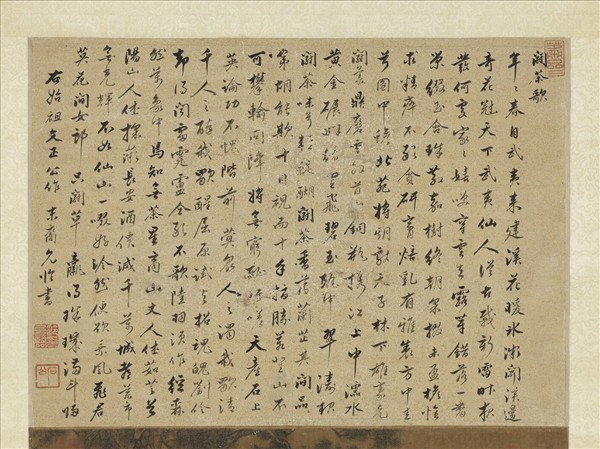 鬥茶歌
年々春自武夷來建溪花暖冰漸開溪邊
奇花冠天下武夷仙人從古栽新雷昨夜
發何處家々嬉笑穿雲去露芽錯落一番
榮綴玉含珠散嘉樹終朝采掇未盈襜惟
求精粹不敢貪研膏焙乳有雅製方中圭
兮圓中蟾北苑將期獻天子林下雄豪先
鬥美鼎磨雲外首山銅瓶攜江上中濡水
黃金碾畔綠塵飛碧玉甌中翠濤起
鬥茶味兮輕醍醐鬥茶香兮薄蘭芷其間品
第胡能欺十目視而十手指勝若登山不
可攀輸同降將無窮恥吁嗟天產石上
英論功不愧階前蓂眾人之濁我歠清
千人之醉我歠醒屈原試與招魂魄劉伶
却得聞雷霆盧仝敢不歌陸羽須作經森
然萬象中焉知無茶星商山丈人休茹芝首
陽山人休採薇長安酒價減千萬城都藥市
無光輝不如仙山一啜好泠然便欲乘風飛君
莫花間女郎只鬥草贏得珠璣滿斗歸
右始祖文正公作 末裔允臨書